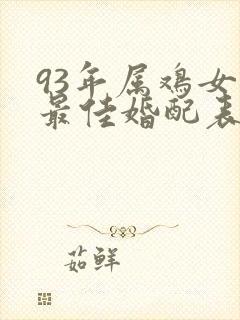 93年属鸡女
最佳婚配表
茹鲜